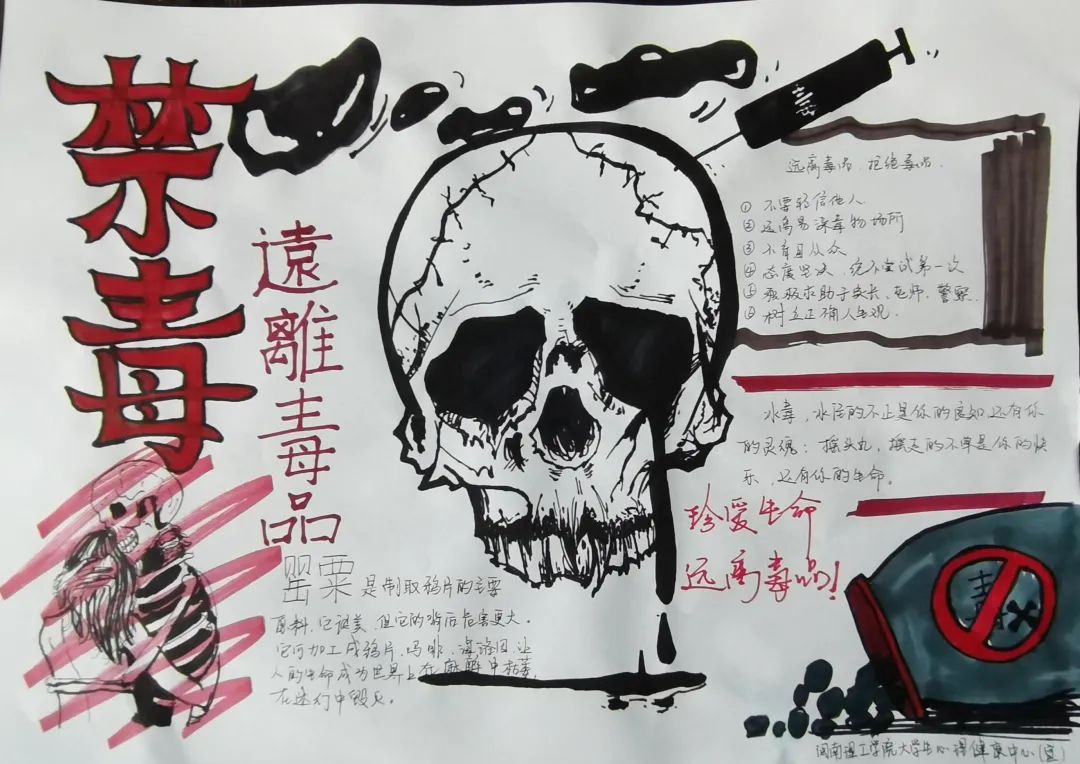 禁毒
遠離毒品
毒
远离毒品,拒绝毒品.
① 不要轻信他人
② 远离易染毒物场所
③ 不盲目从众
④ 态度坚决,绝不尝试第一次
⑤ 积极求助于家长、老师、警察.
⑥ 树立正确人生观.
冰毒,冰住的不止是你的良知,还有你
的灵魂;摇头丸,摇去的不单是你的快
乐,还有你的生命。
珍爱生命
远离毒品!
罂粟是制取鸦片的主要
原料.它很美,但它的背后危害更大.
它可加工成鸦片、吗啡、海洛因,让
人的生命成为世界上在麻醉中枯萎,
在迷幻中毁灭。
毒
闽南理工学院大学生心理健康中心(宣)